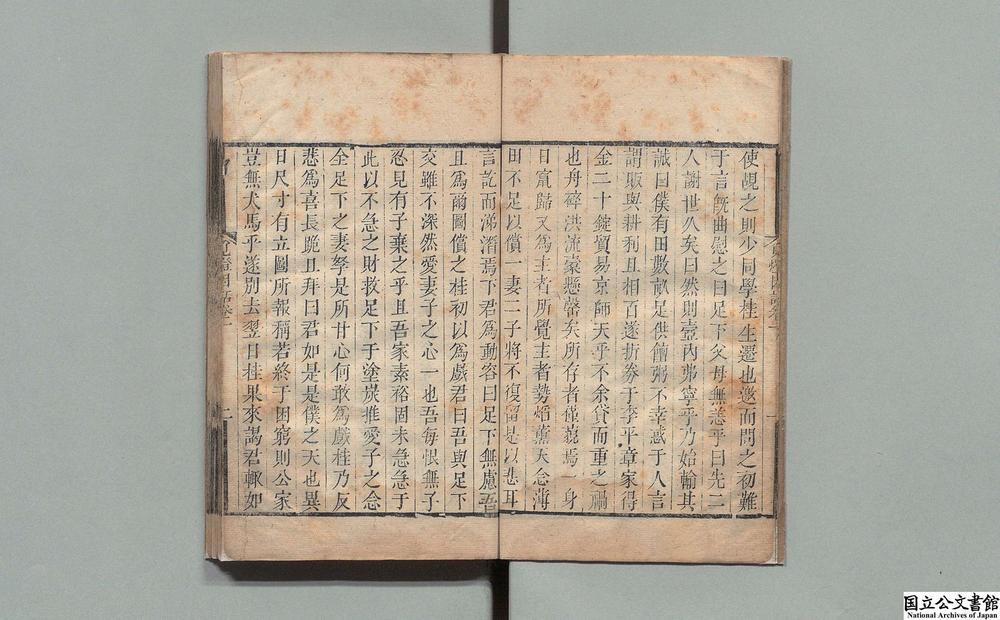 使覘之則少同學桂生遷也邀而問之初難
于言旣曲慰之曰足下父母無恙乎曰先二
人謝世久矣曰然則壼內弟寧乎乃始輸其
誠曰僕有田數畝足供饘粥不幸惑于人言
謂販與耕利且相百遂折券于李平章家得
金二十錠貿易京師天乎不余貸而重之禍
也舟碎洪流橐懸罄矣所存者僅藐焉一身
日竄歸又爲主者所覺主者勢焰薰天念薄
田不足以償一妻二子將不復留是以悲耳
言訖而涕潸焉下君爲動容曰足下無慮吾
且爲爾圖償之桂初以爲戲君曰吾與足下
交雖不深然愛妻子之心一也吾每恨無子
忍見有子棄之乎且吾家素裕固未急急于
此以不急之財救足下于塗炭推愛子之念
全足下之妻孥是所甘心何敢爲戲桂乃反
悲爲喜長跪且拜曰君如是是僕之天也異
日尺寸有立圖所報稱若終于困窮則公家
豈無犬馬乎遂別去翌日桂果來謁君輙如
覓燈因話卷一
二
国立公文書館
National Archives of Japan